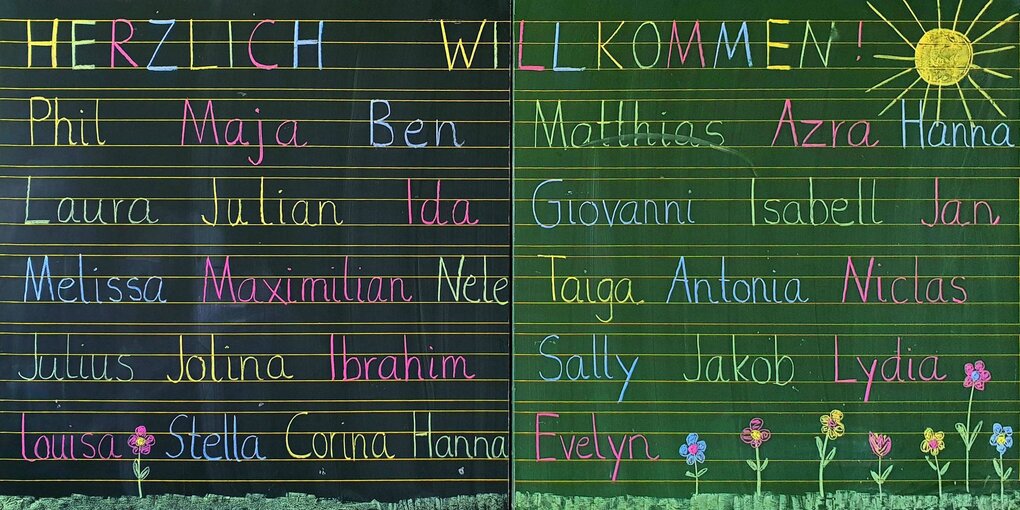 HERZLICH WILLKOMMEN!
Phil Maja Ben Matthias Azra Hanna
Laura Julian Ida Giovanni Isabell Jan
Melissa Maximilian Nele Taiga Antonia Niclas
Julius Jolina Ibrahim Sally Jakob Lydia
Louisa Stella Corina Hanna Evelyn